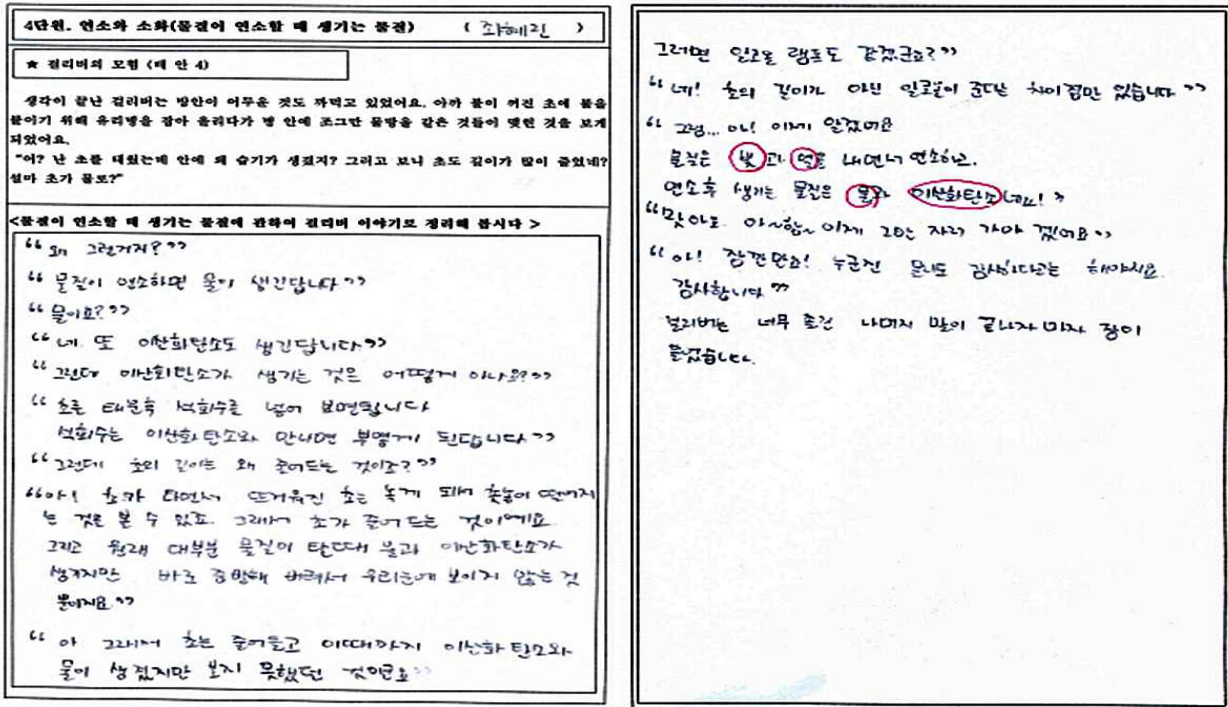 4단원. 연소와 소화(물질이 연소할 때 생기는 물질) ( 좌혜린 )
★ 걸리버의 모험 (대 안 4)
생각이 끝난 걸리버는 방안이 어두운 것도 까먹고 있었어요. 아까 불이 꺼진 초에 불을
붙이기 위해 유리병을 잡아 올리다가 병 안에 조그만 물방울 같은 것들이 맺힌 것을 보게
되었어요.
"어? 난 초를 태웠는데 안에 왜 습기가 생겼지? 그리고 보니 초도 길이가 많이 줄었네?
설마 초가 물로?"
<물질이 연소할 때 생기는 물질에 관하여 걸리버 이야기로 정리해 봅시다 >
“왜 그런거지?”
“물질이 연소하면 물이 생긴답니다”
“물이요?”
“네. 또 이산화탄소도 생긴답니다”
“그런데 이산화탄소가 생기는 것은 어떻게 아나요?”
“초를 태운후 석회수를 넣어 보면됩니다
석회수는 이산화탄소와 만나면 뿌옇게 된답니다”
“그런데 초의 길이는 왜 줄어드는 것이죠?”
“아! 초가 타면서 뜨거워진 초는 녹게 되며 촛농이 떨어지
는 것을 볼 수 있죠. 그래서 초가 줄어드는 것이에요.
그리고 원래 대부분 물질이 탈때 물과 이산화탄소가
생기지만 바로 증발해 버려서 우리눈에 보이지 않는 것
뿐이지요.”
“아 그래서 초는 줄어들고 이때까지 이산화탄소와
물이 생겼지만 보지 못했던 것이군요”
그러면 알코올 램프도 같겠군요?”
“네! 초의 길이가 아닌 알코올이 준다는 차이점만 있습니다”
“그럼... 아! 이제 알겠어요
물질은 빛과 열을 내면서 연소하고.
연소후 생기는 물질은 물과 이산화탄소네요!”
“맞아요. 아~함~ 이제 그만 자러 가야 겠어요”
“아! 잠깐만요! 누군진 몰라도 감사하다고는 해야지요.
감사합니다”
걸리버는 너무 졸린 나머지 말이 끝나자 마자 잠이
들었습니다.